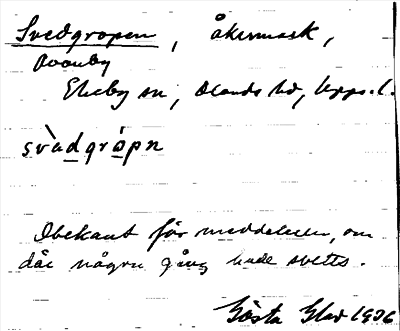 Svedgropen, åkermark,
Ekeby sn, Olands hd, Upps. l.
svàdgrópn
Obekant för meddelaren, om
där någon gång hade svetts.
Gösta Glad 1906